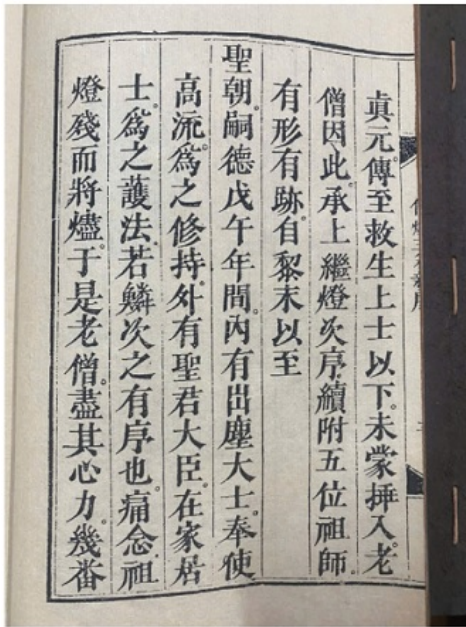 真元。傳至救生上士以下。未蒙揷入。老
僧因此。承上繼燈次序。續附五位祖師。
有形有跡。自黎末以至
聖朝。嗣德戊午年間。內有出塵大士。奉使
高流。爲之修持。外有聖君大臣。在家居
士。爲之護法。若鱗次之有序也。痛念祖
燈殘而將燼。于是老僧。盡其心力。幾畨